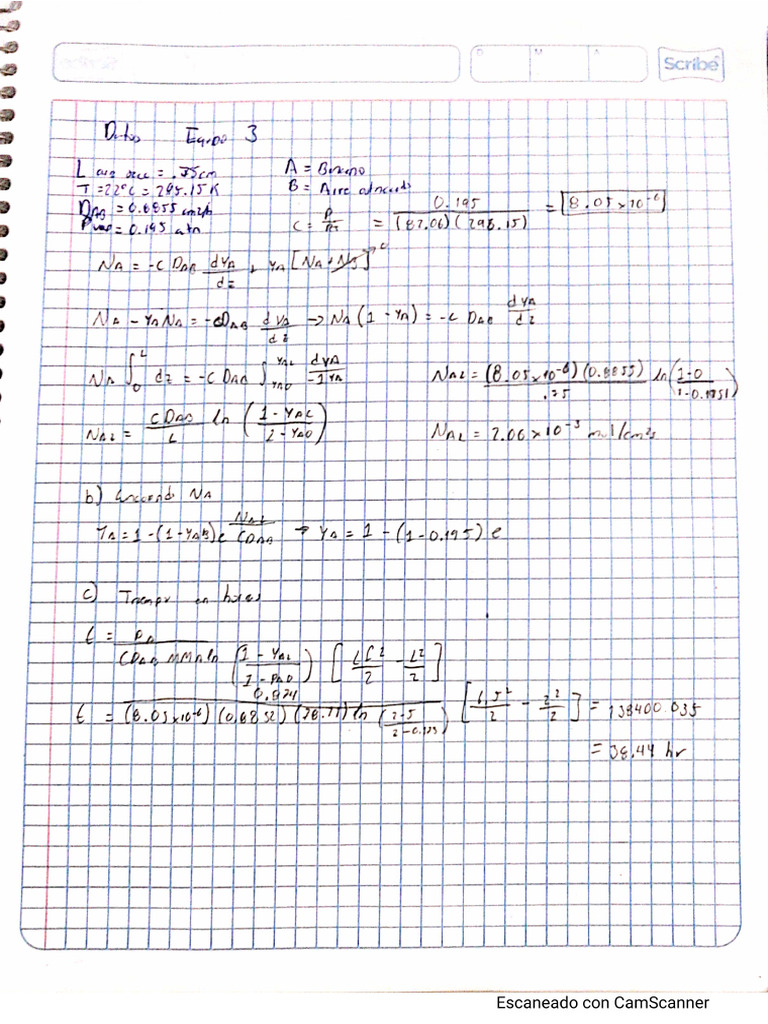 Scribe
D M A
Datos Equipo 3
L = .75cm
T = 22°C = 295.15 K
D_AB = 0.8855 cm2/h
Pvap = 0.195 atm
A = Benceno
B = Aire
C = P/RT = 0.195/(82.06)(298.15) = 8.05 x 10^-6
N_A = -C D_AB dyA/dz + yA [N_A + N_B] 0
N_A - yA N_A = -C D_AB dyA/dz → N_A (1 - yA) = -C D_AB dyA/dz
N_A ∫_0^L dz = -C D_AB ∫_yAO^yAL dyA/-1 yA
N_AZ = C D_AB/L ln (1 - yAL/1 - yAO)
N_AZ = (8.05x10^-6)(0.8855)/.75 ln (1-0/1-0.1951)
N_AZ = 2.06 x 10^-3 mol/cm²s
b) N_A
yA = 1 - (1 - yAO) e N_AZ/C D_AB → yA = 1 - (1 - 0.195) e
c) Tiempo en horas
t = ρA/C D_AB MM_A ln (1 - yAL/1 - PAO) [L²/2 - L²/2]
t = 0.874/(8.05x10^-6)(0.8852)(78.11) ln [- 2²/2] = 138400.035
= 38.44 hr
Escaneado con CamScanner